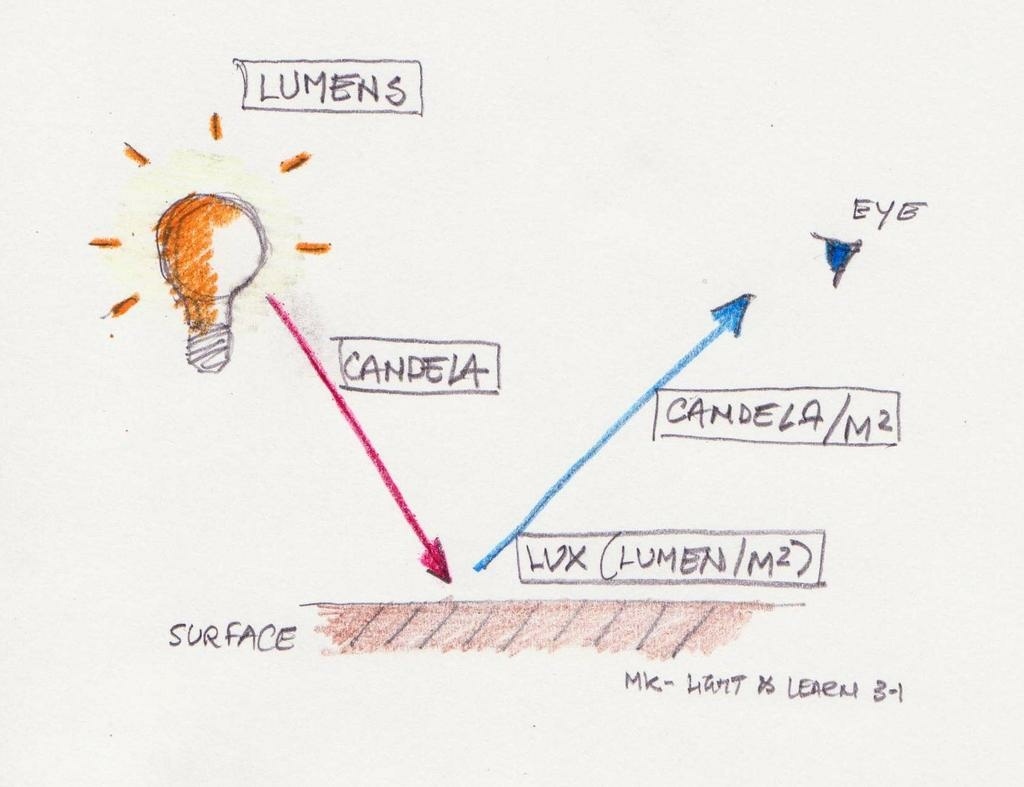 LUMENS
EYE
CANDELA
CANDELA/M²
LUX (LUMEN/M²)
SURFACE
MK- LIGHT & LEARN 3-1